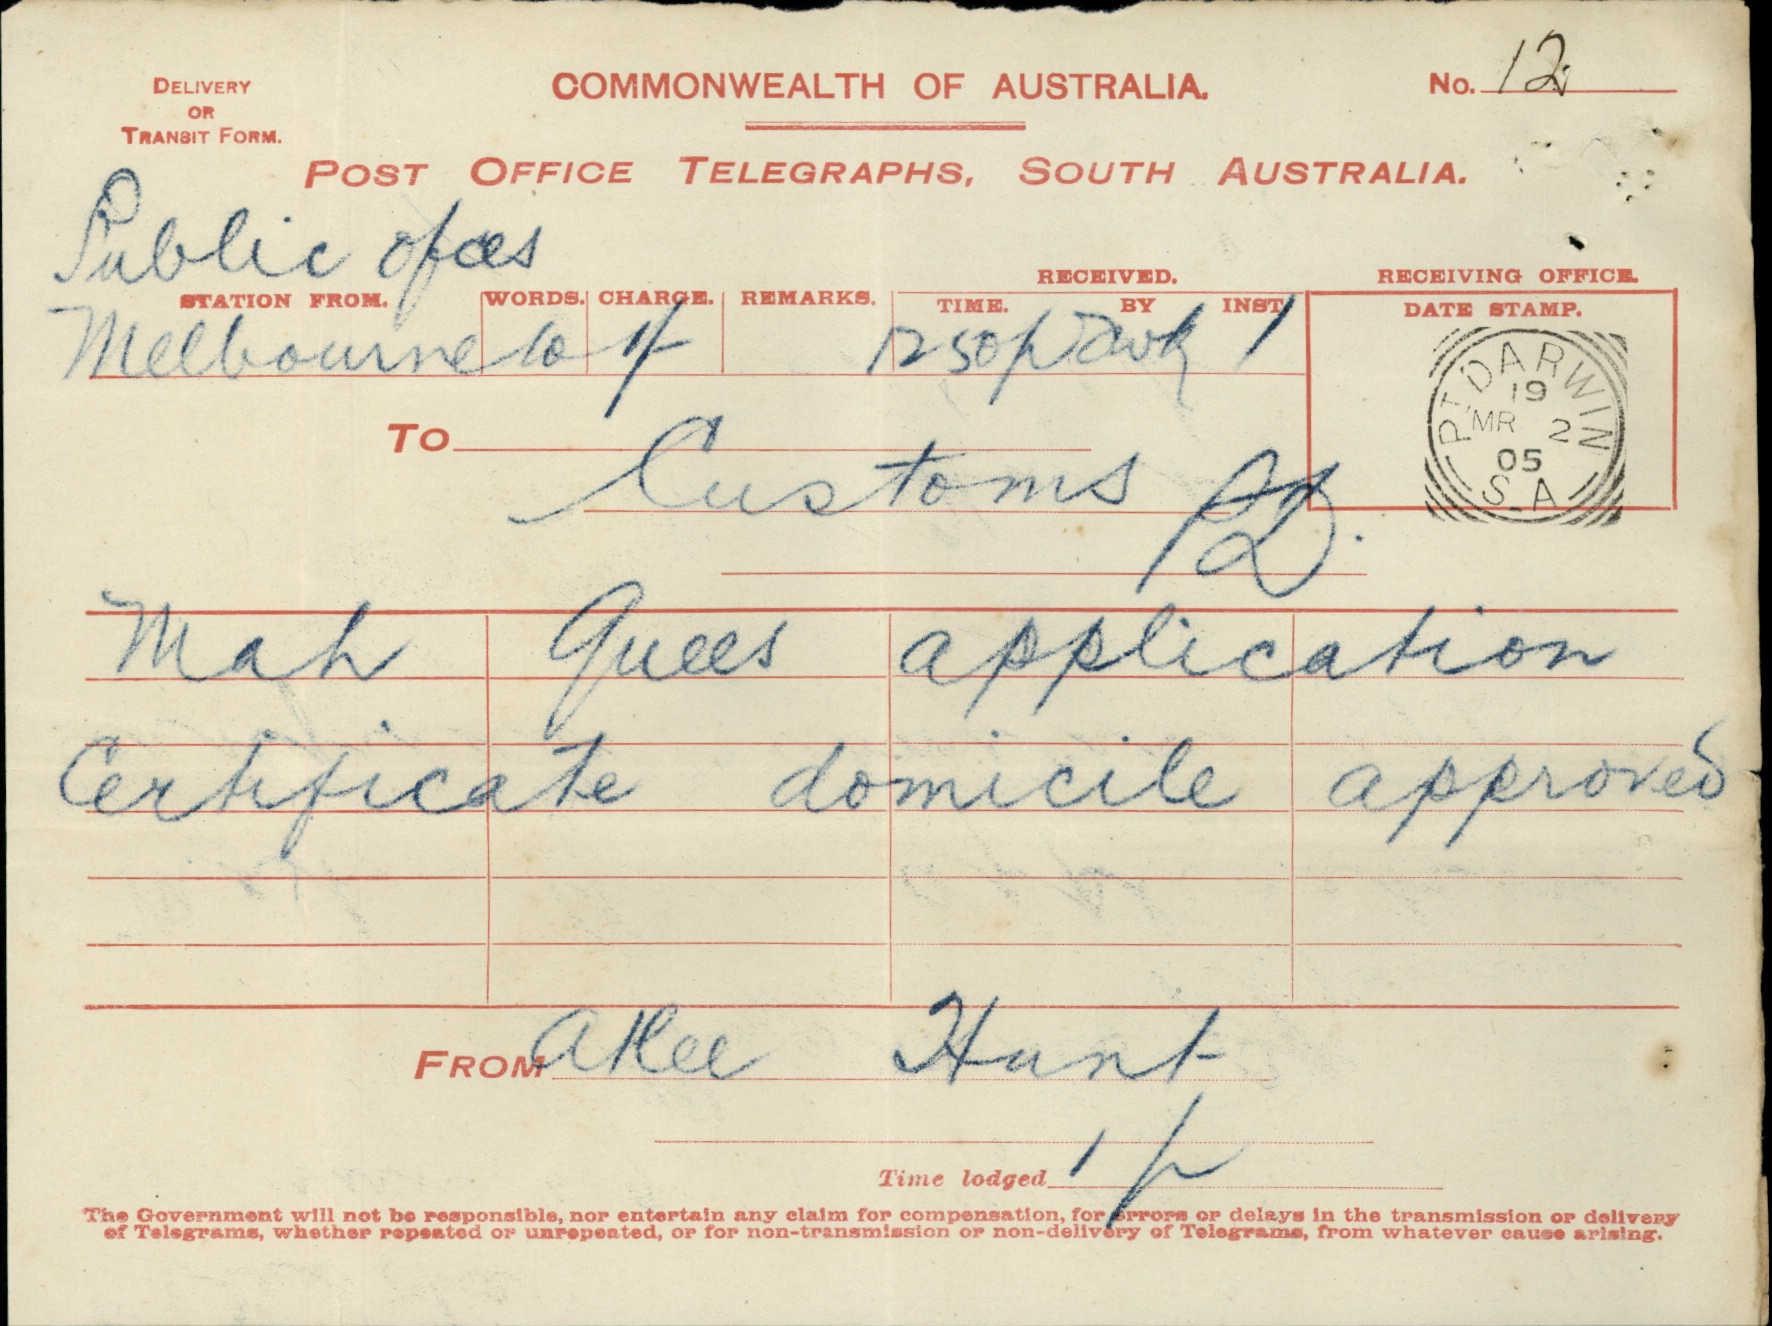 DELIVERY
OR
TRANSIT FORM.
COMMONWEALTH OF AUSTRALIA.
No. 12
POST OFFICE TELEGRAPHS, SOUTH AUSTRALIA.
Public ofces
RECEIVED.
RECEIVING OFFICE.
STATION FROM. WORDS. CHARGE. REMARKS. TIME. BY INST
DATE STAMP.
Melbourne 10 1/ 1250p 1
PT. DARWIN
19
MR 2
05
S. A
TO
Customs PD.
Mah Quees application
Certificate domicile approved
FROM Atlee Hunt
Time lodged 1 p
The Government will not be responsible, nor entertain any claim for compensation, for errors or delays in the transmission or delivery
of Telegrams, whether repeated or unrepeated, or for non-transmission or non-delivery of Telegrams, from whatever cause arising.